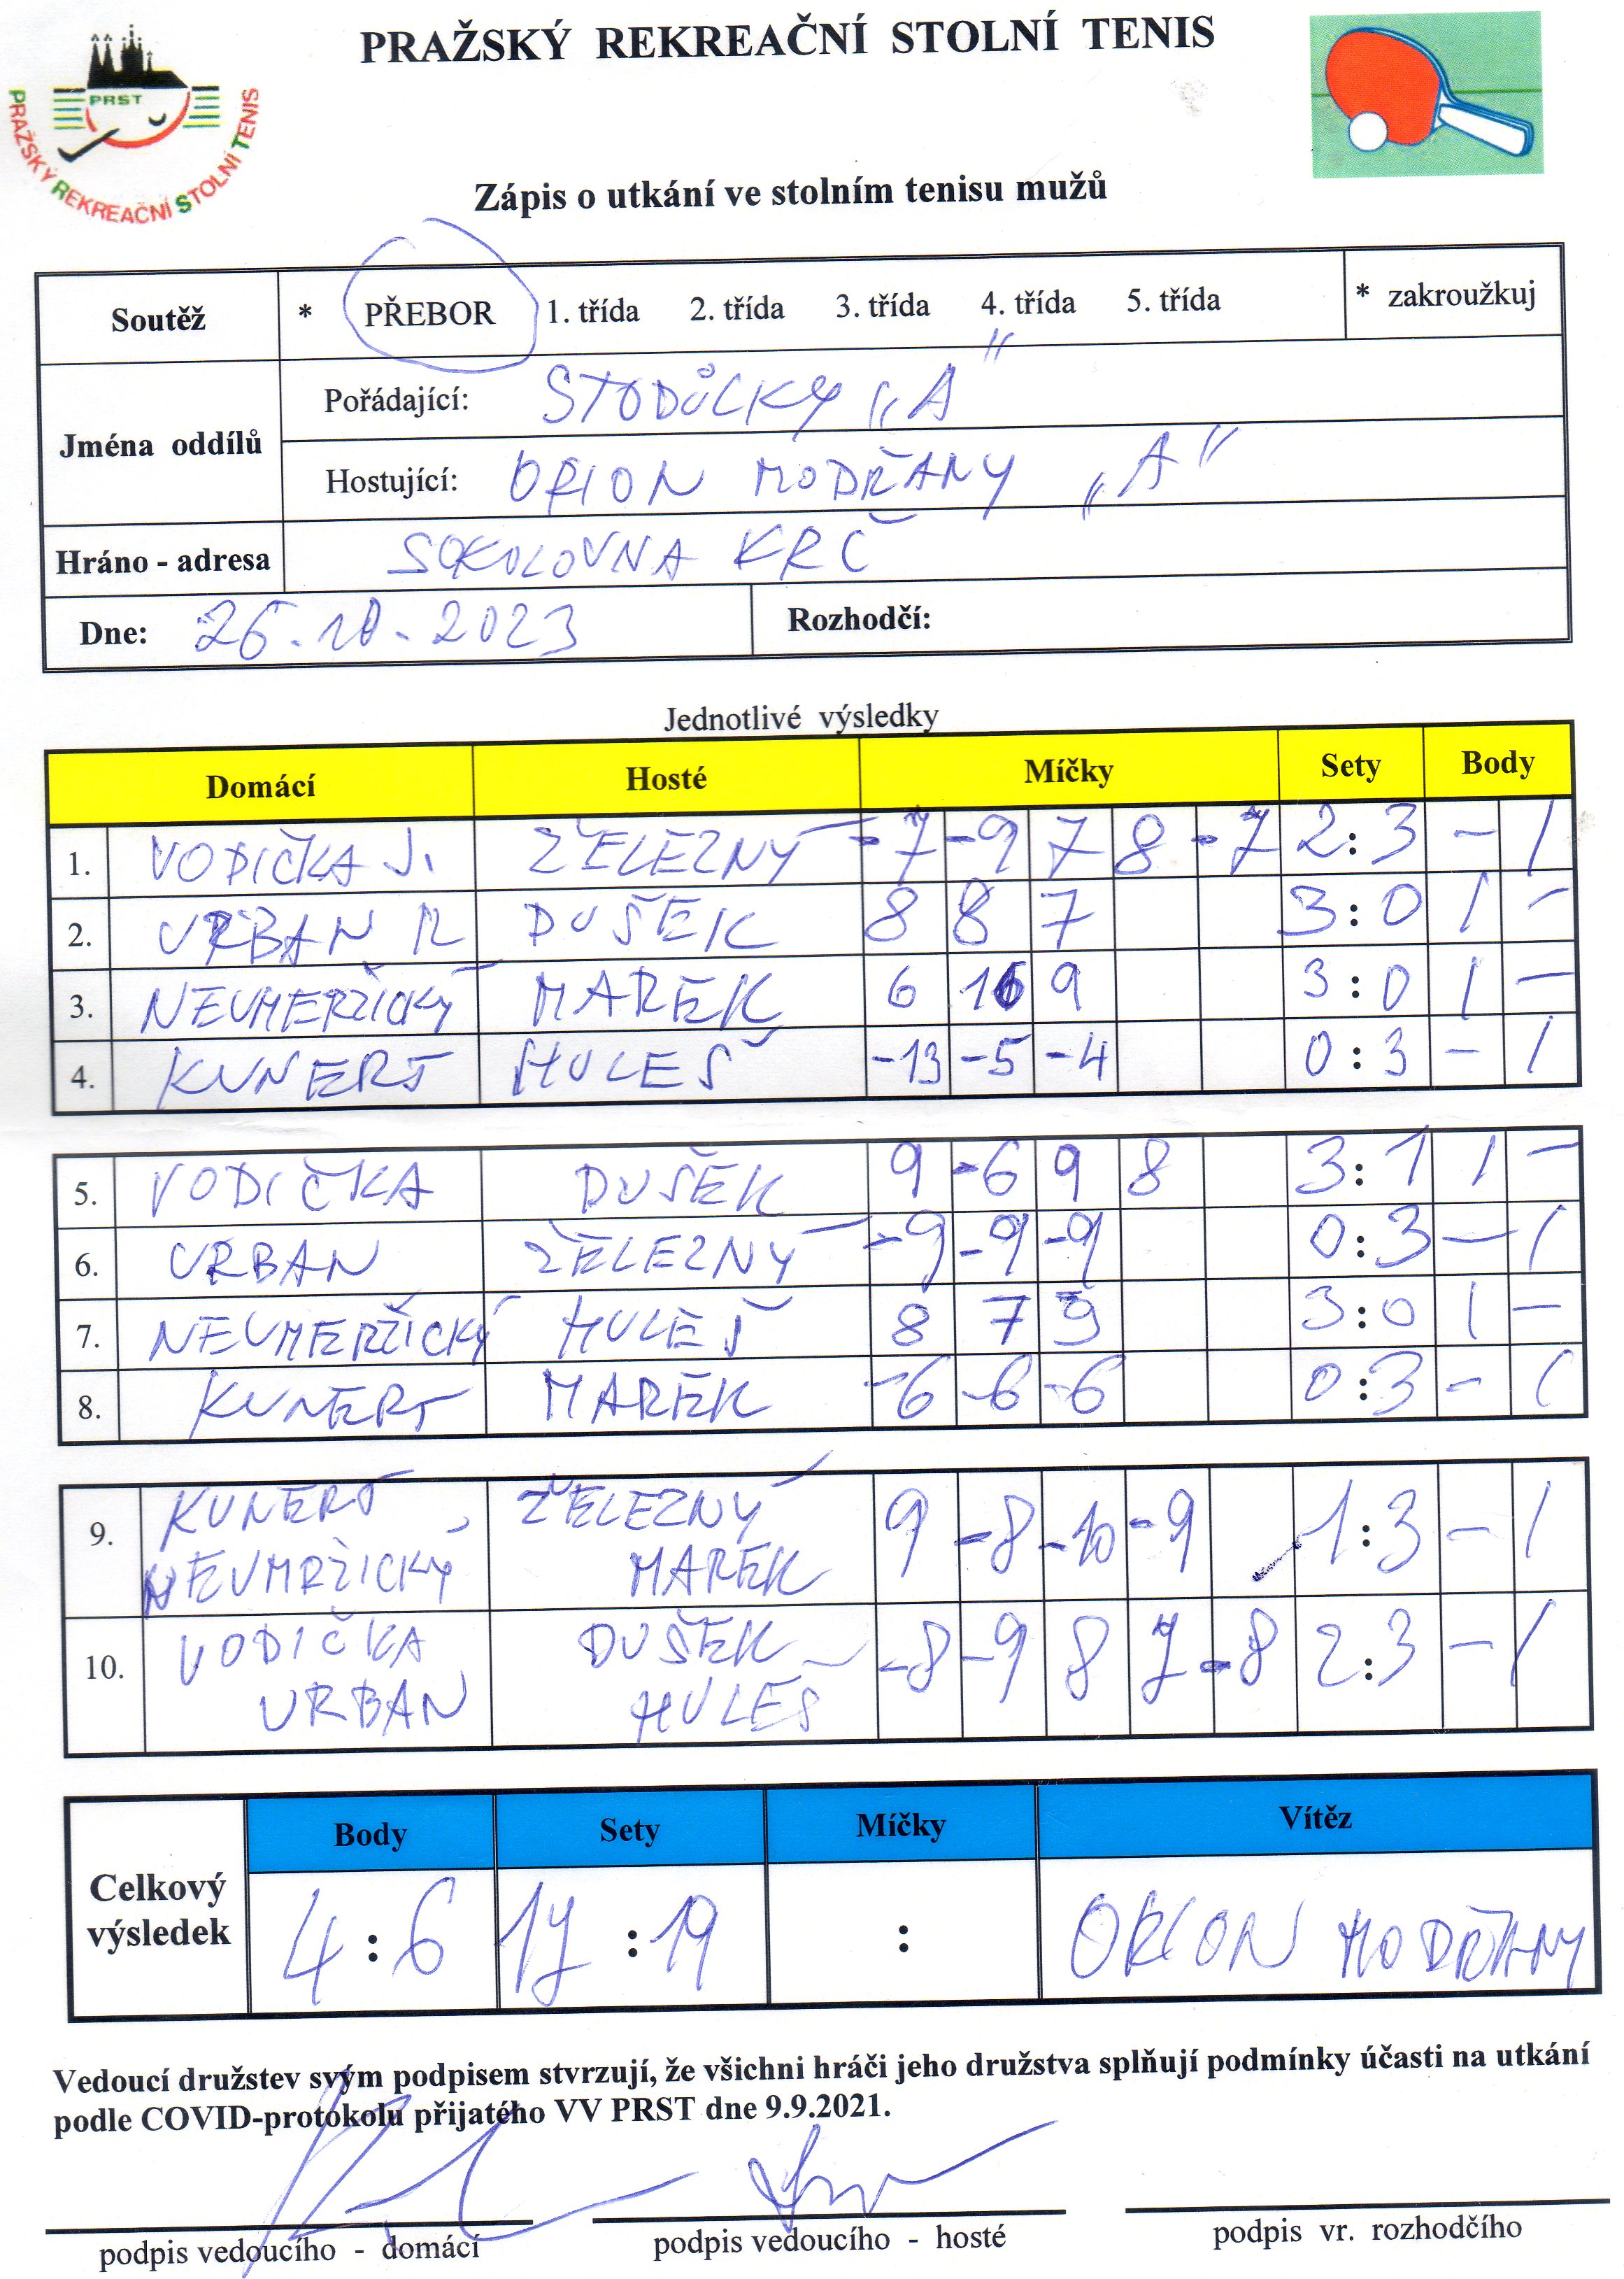 PRAŽSKÝ REKREAČNÍ STOLNÍ TENIS
PRST
PRAŽSKÝ REKREAČNÍ STOLNÍ TENIS
Zápis o utkání ve stolním tenisu mužů
Soutěž * PŘEBOR 1. třída 2. třída 3. třída 4. třída 5. třída * zakroužkuj
Jména oddílů
Pořádající: STODŮLKY „A"
Hostující: ORION MODŘANY „A"
Hráno - adresa SOKOLOVNA KRČ
Dne: 26.10.2023 Rozhodčí:
Jednotlivé výsledky
Domácí Hosté Míčky Sety Body
1. VODIČKA J. ŽELEZNÝ -7 -9 7 8 -7 2:3 - 1
2. URBAN R DUŠEK 8 8 7 3:0 1 -
3. NEUMERŽICKÝ MAREK 6 16 9 3:0 1 -
4. KUNERT HULEŠ -13 -5 -4 0:3 - 1
5. VODIČKA DUŠEK 9 -6 9 8 3:1 1 -
6. URBAN ŽELEZNÝ -9 -9 -9 0:3 - 1
7. NEUMERŽICKÝ HULEŠ 8 7 9 3:0 1 -
8. KUNERT MAREK -6 -6 -6 0:3 - 1
9. KUNERT ŽELEZNÝ 9 -8 -10 -9 1:3 - 1
NEUMRŽICKÝ MAREK
10. VODIČKA DUŠEK -8 -9 8 7 -8 2:3 - 1
URBAN HULES
Celkový výsledek
Body Sety Míčky Vítěz
4:6 17:19 : ORION MODŘANY
Vedoucí družstev svým podpisem stvrzují, že všichni hráči jeho družstva splňují podmínky účasti na utkání
podle COVID-protokolu přijatého VV PRST dne 9.9.2021.
podpis vedoucího - domácí podpis vedoucího - hosté podpis vr. rozhodčího